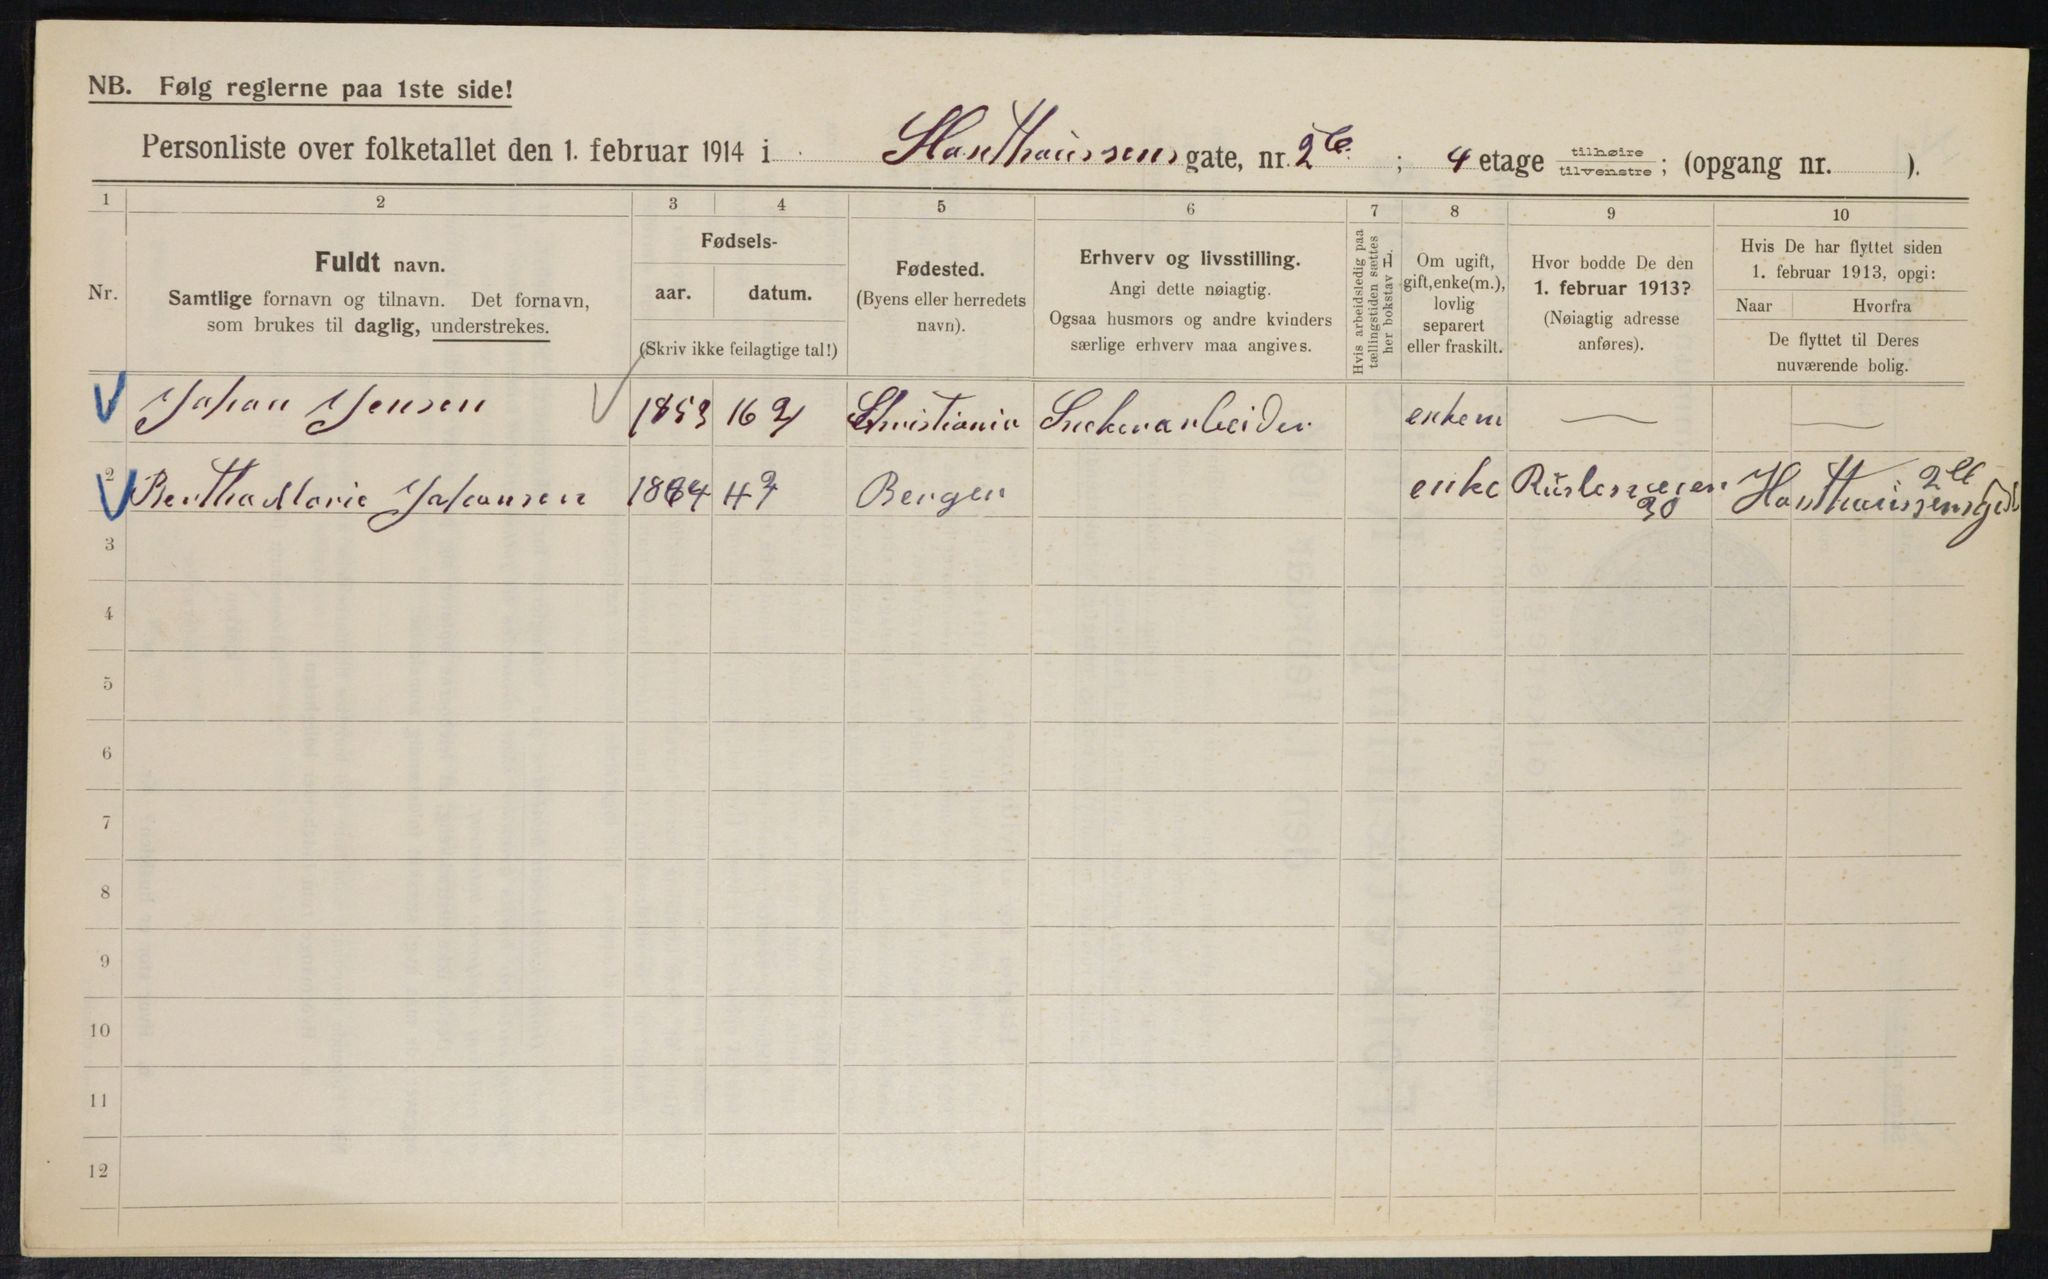 NB. Følg reglerne paa 1ste side!
Personliste over folketallet den 1. februar 1914 i Hansthaussens gate, nr. 2 b ; 4 etage tilhøire tilvenstre ; (opgang nr. ).
1 2 3 4 5 6 7 8 9 10
Nr.
Fuldt navn.
Samtlige fornavn og tilnavn. Det fornavn,
som brukes til daglig, understrekes.
Fødsels-
aar. datum.
(Skriv ikke feilagtige tal!)
Fødested.
(Byens eller herredets
navn).
Erhverv og livsstilling.
Angi dette nøiagtig.
Ogsaa husmors og andre kvinders
særlige erhverv maa angives.
Hvis arbeidsledig paa
tællingstiden sættes
her bokstav L.
Om ugift,
gift, enke(m.),
lovlig
separert
eller fraskilt.
Hvor bodde De den
1. februar 1913?
(Nøiagtig adresse
anføres).
Hvis De har flyttet siden
1. februar 1913, opgi:
Naar Hvorfra
De flyttet til Deres
nuværende bolig.
Johan Jensen 1853 16 2 Christiania arbeider enkem — —
2 Bertha Marie Johansen 1864 4 2 Bergen enke 30 2 b
3
4
5
6
7
8
9
10
11
12